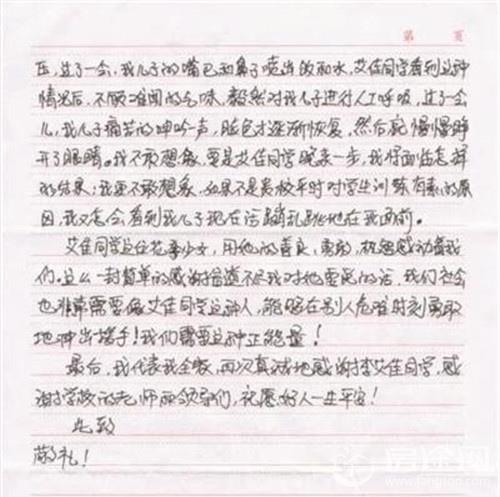 第 页
压,过了一会,我儿子的嘴巴和鼻子喷出饭和水,艾佳同学看到这种
情况后,不顾难闻的气味,毅然对我儿子进行人工呼吸,过了一会
儿,我儿子痛苦的呻吟声,脸色才逐渐恢复,然后就慢慢睁
开了眼睛。我不敢想象,要是艾佳同学晚来一步,我将面临怎样
的结果;我更不敢想象,如果不是贵校平时对学生训练有素的原
因,我又怎会看到我儿子现在活蹦乱跳地在我面前。
艾佳同学这位花季少女,用她的善良、勇敢、机智感动着我
们。这么一封简单的感谢信道不尽我对她要说的话,我们社会
也非常需要像艾佳同学这种人,能够在别人危难时刻勇敢
地伸出援手!我们需要这种正能量!
最后,我代表我全家,再次真诚地感谢李艾佳同学,感
谢学校的老师和领导们,祝愿好人一生平安!
此致
敬礼!
房途网